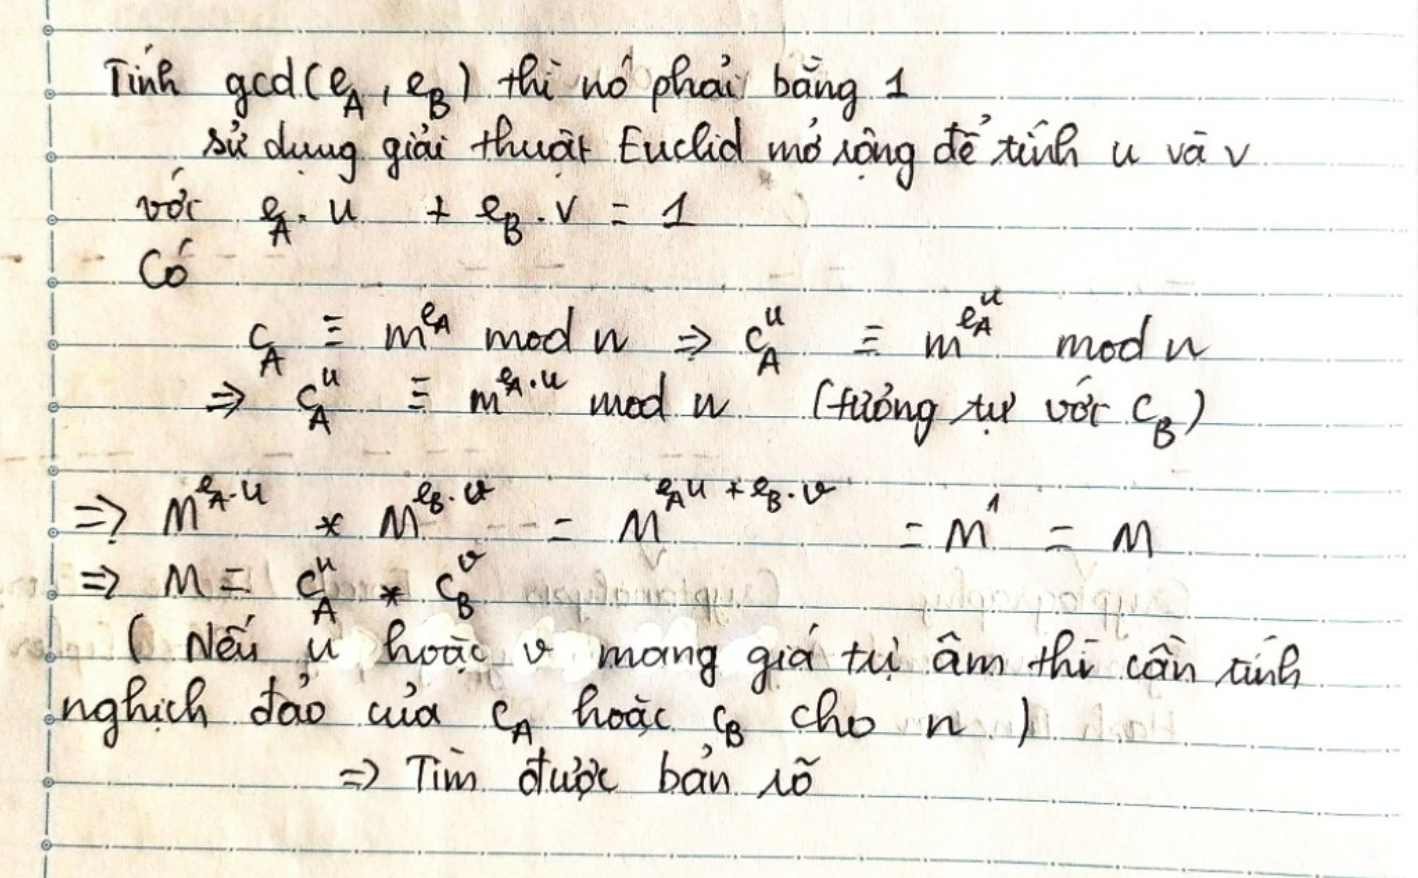 Tính gcd(e_A, e_B) thì nó phải bằng 1
sử dụng giải thuật Euclid mở rộng để tính u và v
với e_A . u + e_B . v = 1
Có
c_A ≡ m^{e_A} mod n => c_A^u ≡ m^{e_A^u} mod n
=> c_A^u ≡ m^{e_A.u} mod n (tương tự với c_B)
=> M^{e_A.u} * M^{e_B.v} = M^{e_A u + e_B.v} = M^1 = M
=> M = c_A^u * c_B^v
( Nếu u hoặc v mang giá trị âm thì cần tính
nghịch đảo của c_A hoặc c_B cho n )
=> Tìm được bản rõ